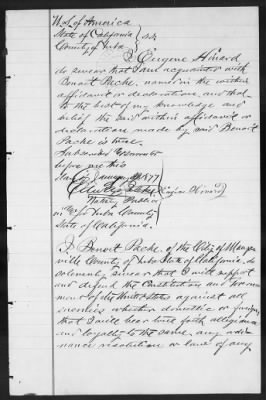 U.S. of America
State of California } ss
County of Yuba
I Eugene
do swear that I am acquainted with
Benoit Pache, named in the within
affidavit or declaration, and that
to the best of my knowledge and
belief the said within affidavit or
declaration made by said Benoit
Pache is true.
Subscribed & sworn to
before me this
day January 1877
Notary Public
in & for Yuba County
State of California.
I Benoit Pache, of the City of Marys-
ville County of Yuba State of California, do
solemnly swear that I will support
and defend the Constitution and Govern-
ment of the United States against all
enemies whether domestic or foreign,
that I will bear true faith allegiance
and loyalty to the same, any ordi-
nance resolution or law of any